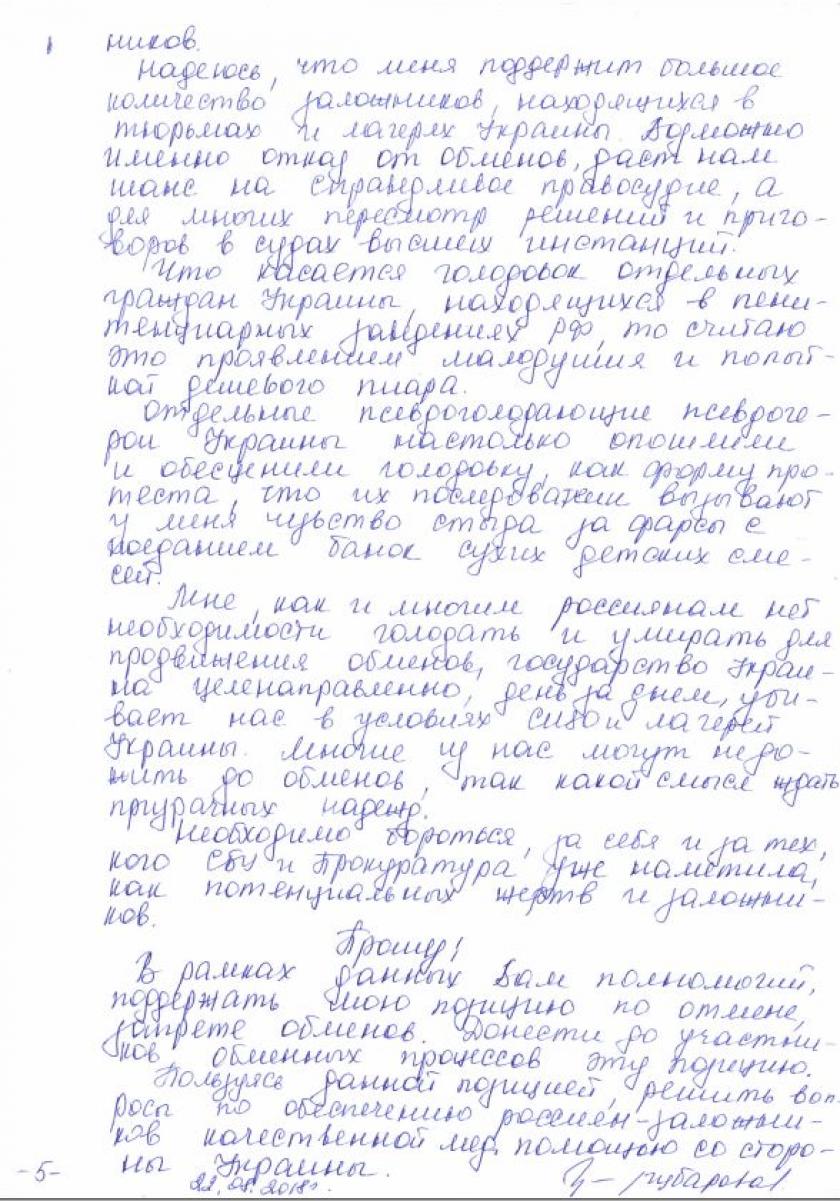 ников.
Надеюсь, что меня поддержит большое
количество заложников, находящихся в
тюрьмах и лагерях Украины. Возможно
именно отказ от обменов, даст нам
шанс на справедливое правосудие, а
для многих пересмотр решений и приго-
воров в судах высших инстанций.
Что касается голодовок отдельных
граждан Украины, находящихся в пени-
тенциарных заведениях РФ, то считаю
это проявлением малодушия и попыт-
кой дешевого пиара.
Отдельные псевдоголодающие псевдоге-
рои Украины настолько опошлили
и обесценили голодовку, как форму про-
теста, что их последователи вызывают
у меня чувство стыда за фарсы с
поеданием банок сухих детских сме-
сей.
Мне, как и многим россиянам нет
необходимости голодать и умирать для
продвижения обменов, государство Украи-
на целенаправленно, день за днем, уби-
вает нас в условиях СИЗО и лагерей
Украины. Многие из нас могут недо-
жить до обменов, так какой смысл ждать
призрачных надежд.
Необходимо бороться, за себя и за тех,
кого СБУ и Прокуратура уже наметила,
как потенциальных жертв и заложни-
ков.
Прошу!
В рамках данных Вам полномочий,
поддержать мою позицию по отмене,
запрете обменов. Донести до участни-
ков обменных процессов эту позицию.
Пользуясь данной позицией, решить воп-
росы по обеспечению россиян-заложни-
ков качественной мед. помощью со сторо-
ны Украины.
-5-
22.08.2018г.